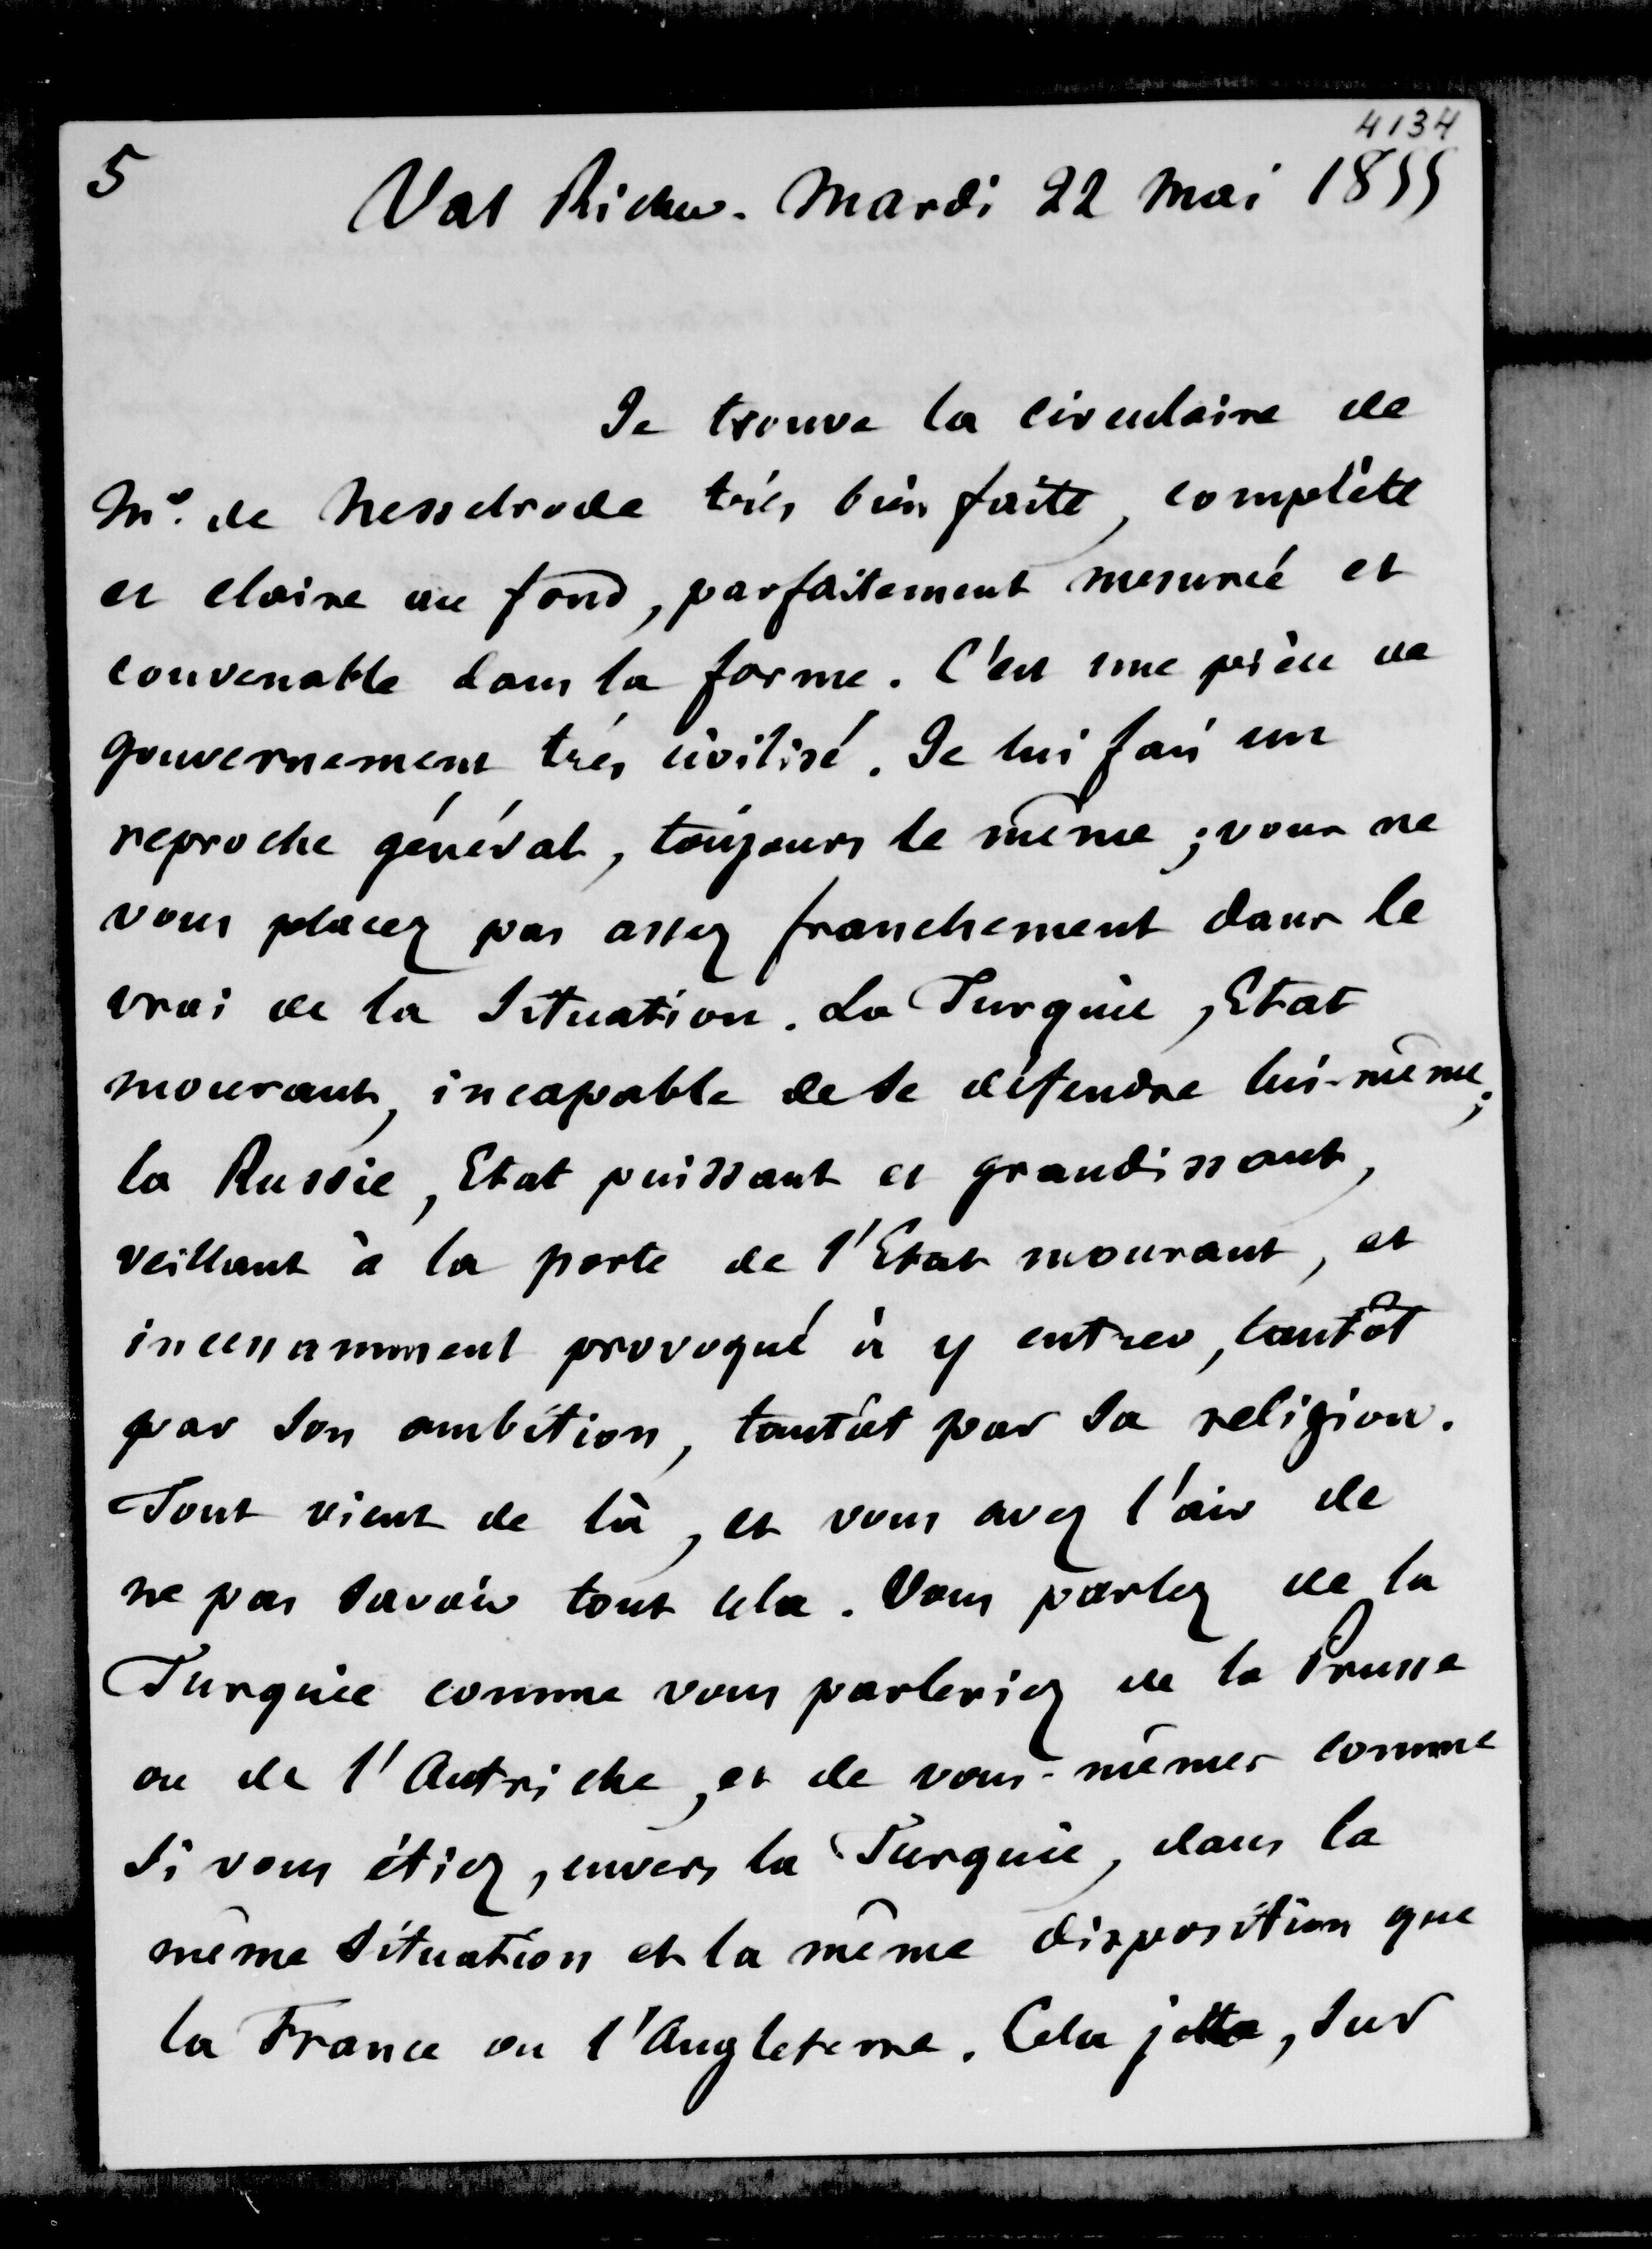 4134
5
Val Richer. Mardi 22 Mai 1855
Je trouve la circulaire de
Mr. de Nesselrode très bien faite, complète
et claire au fond, parfaitement mesurée et
convenable dans la forme. C'est une pièce de
gouvernement très civilisé. Je lui fais un
reproche général, toujours le même ; vous ne
vous placez pas assez franchement dans le
vrai de la situation. La Turquie, Etat
mourant, incapable de se défendre lui-même ;
la Russie, Etat puissant et grandissant,
veillant à la porte de l'Etat mourant, et
incessamment provoqué à y entrer, tantôt
par son ambition, tantôt par sa religion.
Tout vient de là, et vous avez l'air de
ne pas savoir tout cela. Vous parlez de la
Turquie comme vous parleriez de la Prusse
ou de l'Autriche, et de vous-mêmes comme
si vous étiez, envers la Turquie, dans la
même situation et la même disposition que
la France ou l'Angleterre. Cela jette, sur